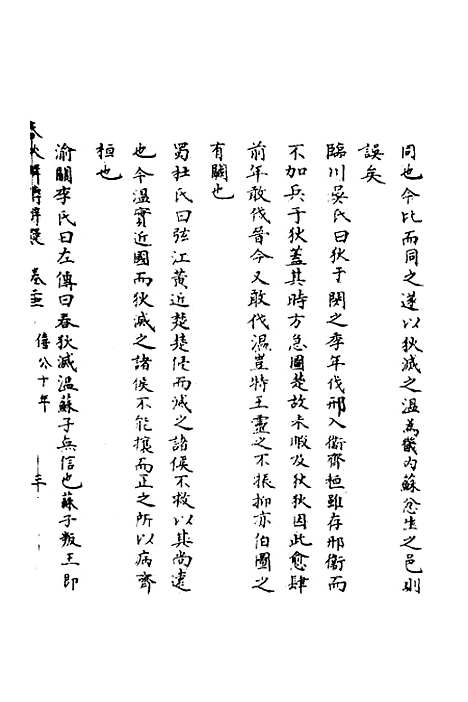 同也今比而同之遂以狄滅之溫為畿內蘇忿生之邑則
誤矣
臨川吳氏曰狄于閔之季年伐邢入衛齊桓雖存邢衛而
不加兵于狄蓋其時方急圖楚故未暇及狄狄因此愈肆
前年敢伐晉今又敢伐溫豈特王靈之不振抑亦伯圖之
有闕也
蜀杜氏曰弦江黃近楚楚侵而滅之諸侯不救以其尚遠
也今溫實近國而狄滅之諸侯不能攘而正之所以病齊
桓也
渝關李氏曰左傳曰春狄滅溫蘇子無信也蘇子叛王即
春秋
卷三
僖公十年
三